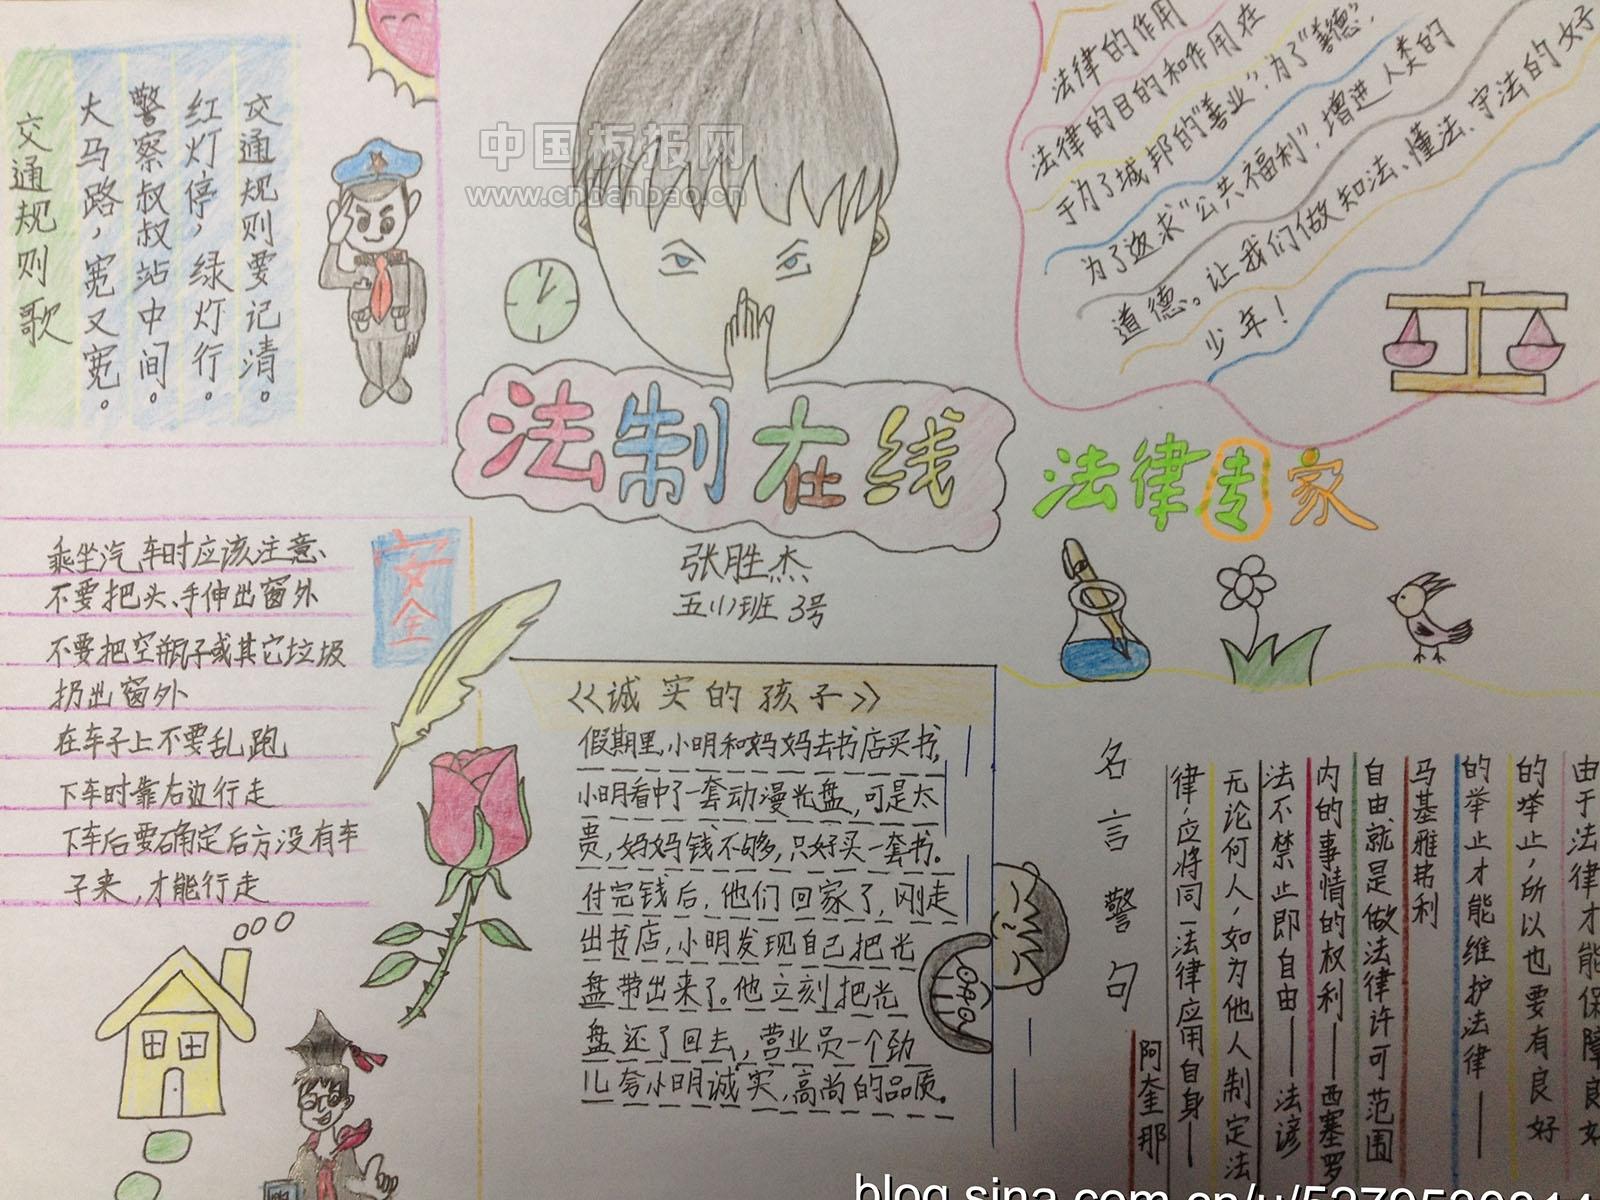 交通规则歌
大马路，宽又宽。
警察叔叔站中间。
红灯停，绿灯行。
交通规则要记清。
中国板报网
www.cnbanbao.cn
法律的作用
法律的目的和作用在
于为了城邦的“善业”，为了“善德”，
为了追求“公共福利”，增进人类的
道德。让我们做知法、懂法、守法的好
少年！
法制在线
张胜杰
五(1)班 3号
法律专家
安全
乘坐汽车时应该注意、
不要把头、手伸出窗外
不要把空瓶子或其它垃圾
扔出窗外
在车子上不要乱跑
下车时靠右边行走
下车后要确定后方没有车
子来，才能行走
《诚实的孩子》
假期里，小明和妈妈去书店买书，
小明看中了一套动漫光盘，可是太
贵，妈妈钱不够，只好买一套书。
付完钱后，他们回家了，刚走
出书店，小明发现自己把光
盘带出来了。他立刻把光
盘还了回去，营业员一个劲
儿夸小明诚实，高尚的品质。
名言警句
由于法律才能保障良好
的举止，所以也要有良好
的举止才能维护法律——
马基雅弗利
自由就是做法律许可范围
内的事情的权利——西塞罗
法不禁止即自由——法谚
无论何人，如为他人制定法
律，应将同一法律应用自身—
阿奎那